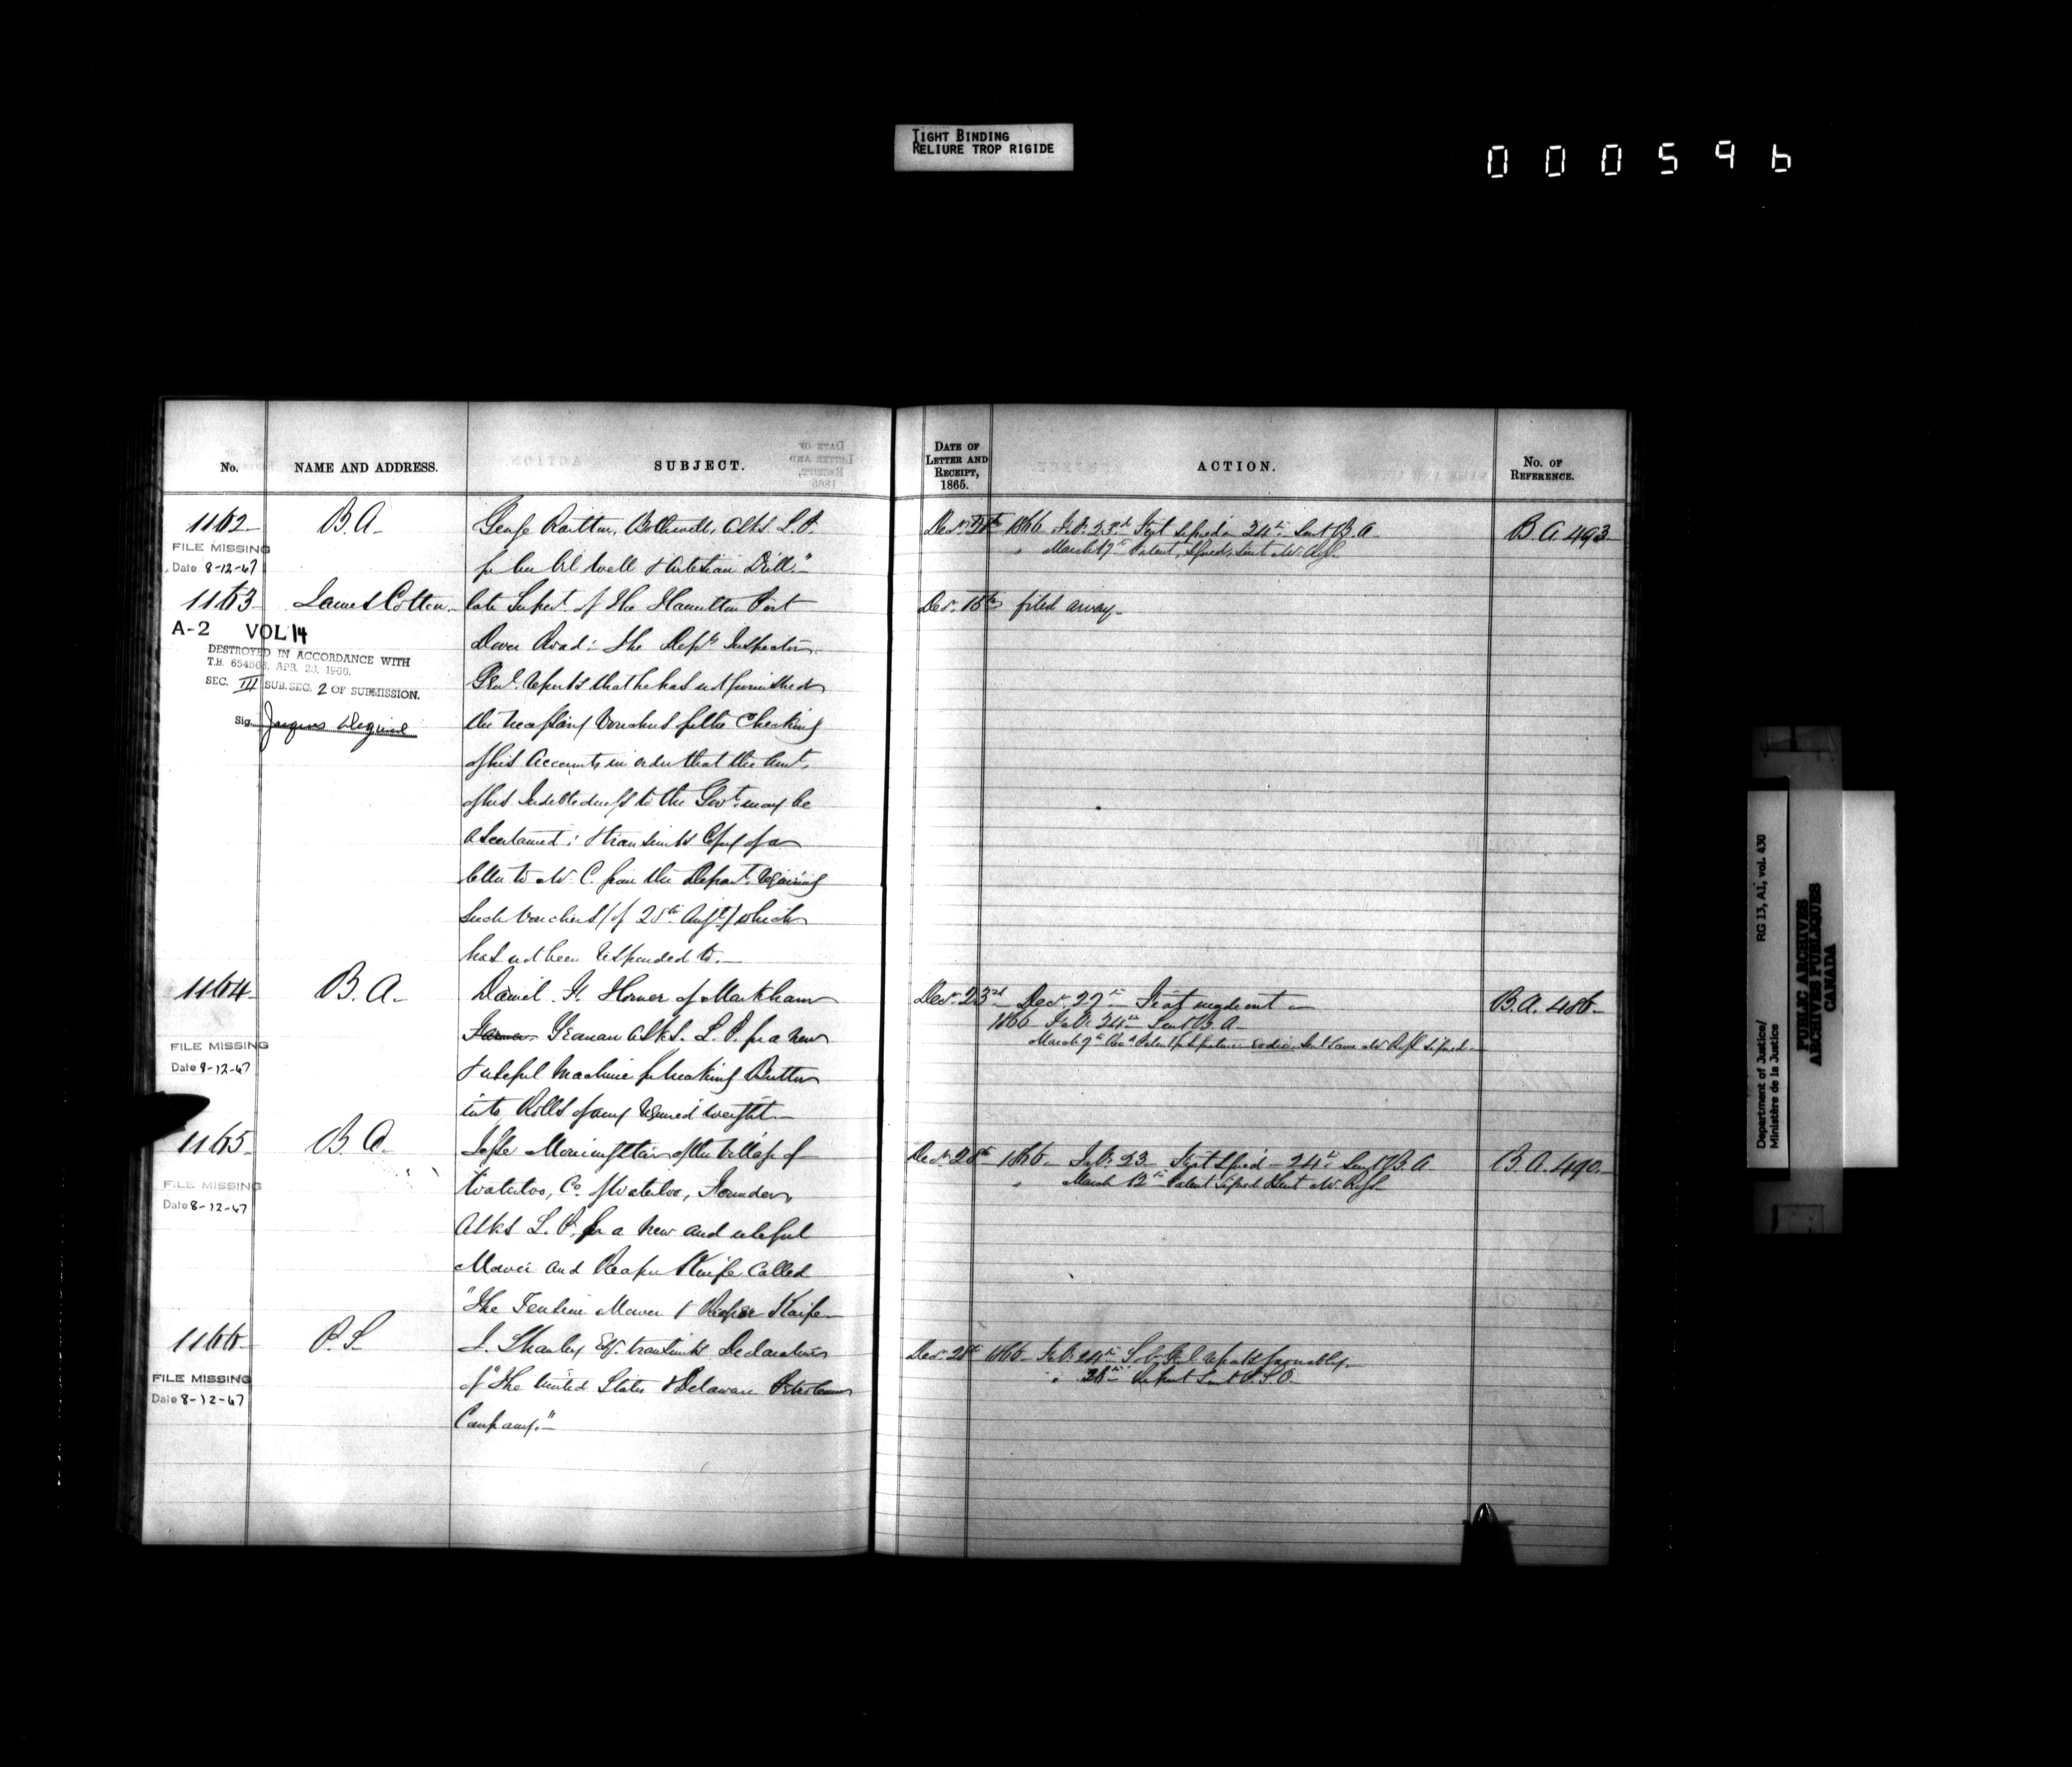 TIGHT BINDING
RELIURE TROP RIGIDE
000596
No.
NAME AND ADDRESS.
SUBJECT.
1162
B.A.
George Bothwell, asks L.P.
for Oil Well & Artesian Drill."
FILE MISSING
Date 8-12-67
1163
James Cotton
late Supert. of the Hamilton Port
Dover Road: the Depy Inspector
Genl. reports that he has not furnished
the necessary Vouchers for the Checking
of his Accounts in order that the Amt.
of his Indebtedness to the Govt. may be
ascertained: transmits Copy of a
letter to Mr. C. from the Depart. requiring
such vouchers (of 25th Augt.) which
has not been responded to.
A-2 VOL 14
DESTROYED IN ACCORDANCE WITH
T.B. 654563, APR. 23, 1966.
SEC. III SUB. SEC. 2 OF SUBMISSION.
Sig.
1164
B.A.
Daniel H. Horner of Markham
Farmer Yeoman asks L.P. for a new
& useful Machine for making Butter
into Rolls of any required weight
FILE MISSING
Date 8-12-67
1165
B.A.
Morningstar of the Village of
Waterloo, Co. of Waterloo, Founder,
asks L.P. for a new and useful
Mower and Reaper Knife called
"The Tension Mower & Reaper Knife
FILE MISSING
Date 8-12-67
1166
P.S.
Shanley Esq. transmits Declaration
of "The United States & Delaware Petroleum
Company."
FILE MISSING
Date 8-12-67
DATE OF
LETTER AND
RECEIPT,
1865.
ACTION.
No. OF
REFERENCE.
Decr. 28th 1866 Feb. 23rd signed 24th Sent B.A. B.A. 493
" March 17th Patent signed, sent Mr.
Decr. 16th filed away
Decr. 23rd Decr. 27th made out B.A. 486
1866 Feb. 24th Sent B.A.
March 9th
Decr. 28th 1866 Feb. 23 signed 24th Sent B.A. B.A. 490
" March 12th Patent signed & sent Mr.
Decr. 28th 1866 Feb. 24th Sol. Genl. reports favourably
" 26th Report sent P.S.O.
Department of Justice/ RG 13, A1, vol. 430
Ministère de la Justice
PUBLIC ARCHIVES
ARCHIVES PUBLIQUES
CANADA